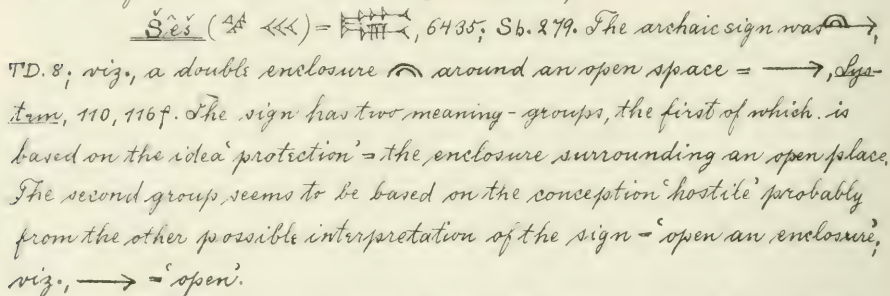 Šêš ( 𒋀 𒌍 ) = , 6435; Sb. 279. The archaic sign was ,
TD. 8; viz., a double enclosure around an open space = ⟶, Sys-
tem, 110, 116f. The sign has two meaning-groups, the first of which is
based on the idea 'protection' = the enclosure surrounding an open place.
The second group seems to be based on the conception 'hostile' probably
from the other possible interpretation of the sign = 'open an enclosure',
viz., ⟶ = 'open'.